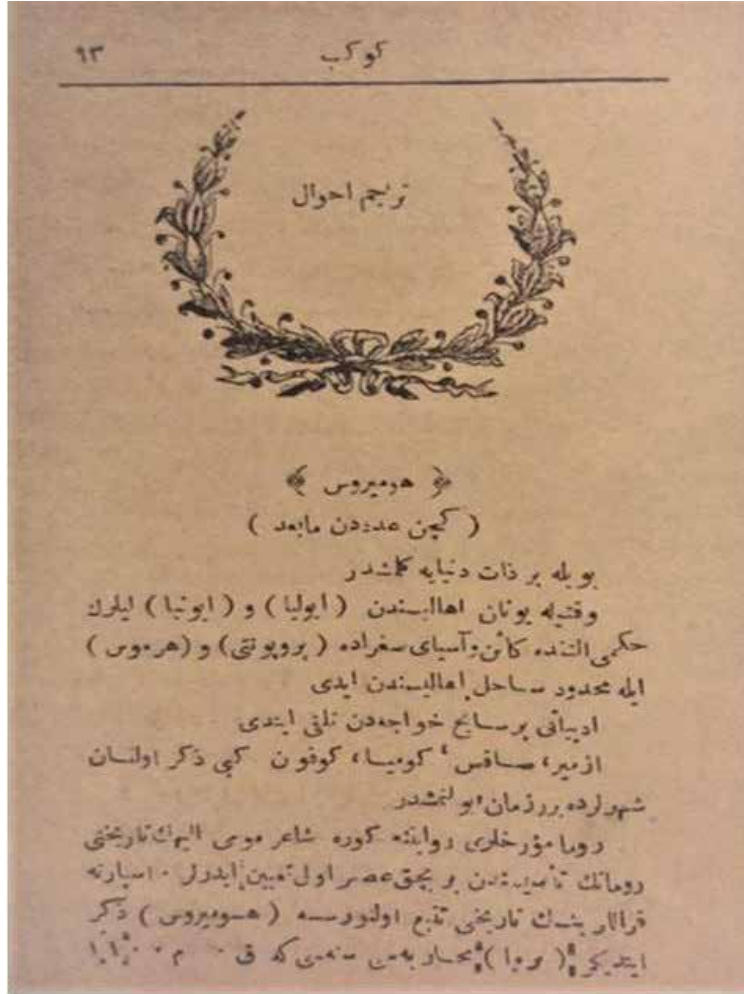 ٩٣
كوكب
تراجم احوال
﴿ هوميروس ﴾
( كچن عددن مابعد )
بويله بر ذات دنيايه كلمشدر
وقتيله يونان اهاليسندن ( ايوليا ) و ( ايونيا ) ليلرك
حكمى التنده كائن وآسياى صغراده ( پروپونتى ) و ( هرموس )
ايله محدود ساحل اهاليسندن ايدى
ادبياتى بر سايح خواجه‌دن تلقى ايتدى
ازمير، صاقس، كوميا، كوفون كبى ذكر اولنان
شهرلرده بر زمان بولنمشدر
روما مؤرخلرى روايتنه كوره شاعر مومى اليهك تاريخنى
رومانك تأسيسندن بر بچق عصر اول تعيين ايدرلر . اسپارته
قراللرينك تاريخى تتبع اولنورسه ( هوميروس ) ذكر
ايتديكى ( تروا ) محاربه‌سى كه ق م